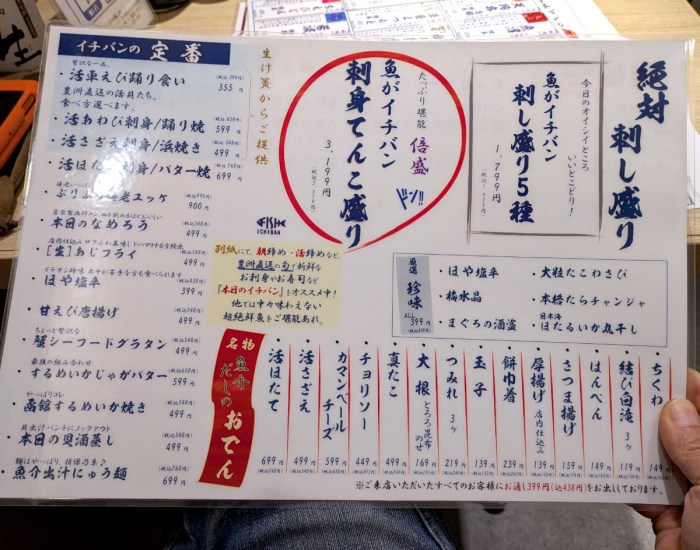 イチバンの 定番
贅沢な一品。
・活車えび踊り食い
355 円
豊洲直送の活貝たち。
食べ方選べます。
・活あわび刺身/踊り焼
599 円
・活さざえ刺身/浜焼き
499 円
・活ほたて刺身/バター焼
699 円
900 円
・本日のなめろう
499 円
・[生]あじフライ
499 円
・ほや塩辛
399 円
・甘えび唐揚げ
499 円
ちょっと贅沢
・蟹シーフードグラタン
499 円
最強の組み合わせ
・するめいかじゃがバター
599 円
やっぱりコレ
・函館するめいか焼き
499 円
貝出汁パンチにノックアウト
・本日の貝酒蒸し
499 円
麺はやっぱり、担保の糸♪
・魚介出汁にゅう麺
699 円
生け簀からご提供
FISH
ICHIBAN
たっぷり堪能 倍盛
魚がイチバン
刺身てんこ盛り
ドン!!
3,199円
絶対 刺し盛り
今日のオイシイところ
いいとこどり!
魚がイチバン
刺し盛り5種
1,799円
別紙にて、朝締め・活締めなど
豊洲直送の旬で新鮮な
お刺身やお寿司など
『本日のイチバン』をオススメ中!
他では中々味わえない
超絶鮮魚をご堪能あれ。
厳選 珍味
ALL
399 円
・ほや塩辛
・梅水晶
・まぐろの酒盗
・大粒たこわさび
・本格たらチャンジャ
日本海
・ほたるいか丸干し
名物 魚介だしのおでん
・ちくわ
149 円
・結び白滝 3ヶ
119 円
・はんぺん
149 円
・さつま揚げ
159 円
・厚揚げ 店内仕込み
139 円
・餅巾着
239 円
・玉子
139 円
・つみれ 3ヶ
219 円
・大根 とろろ昆布のせ
169 円
・真たこ
499 円
・チョリソー
449 円
・カマンベールチーズ
599 円
・活さざえ
499 円
・活ほたて
699 円
※ご来店いただいたすべてのお客様にお通し399円(込438円)をお出ししております。